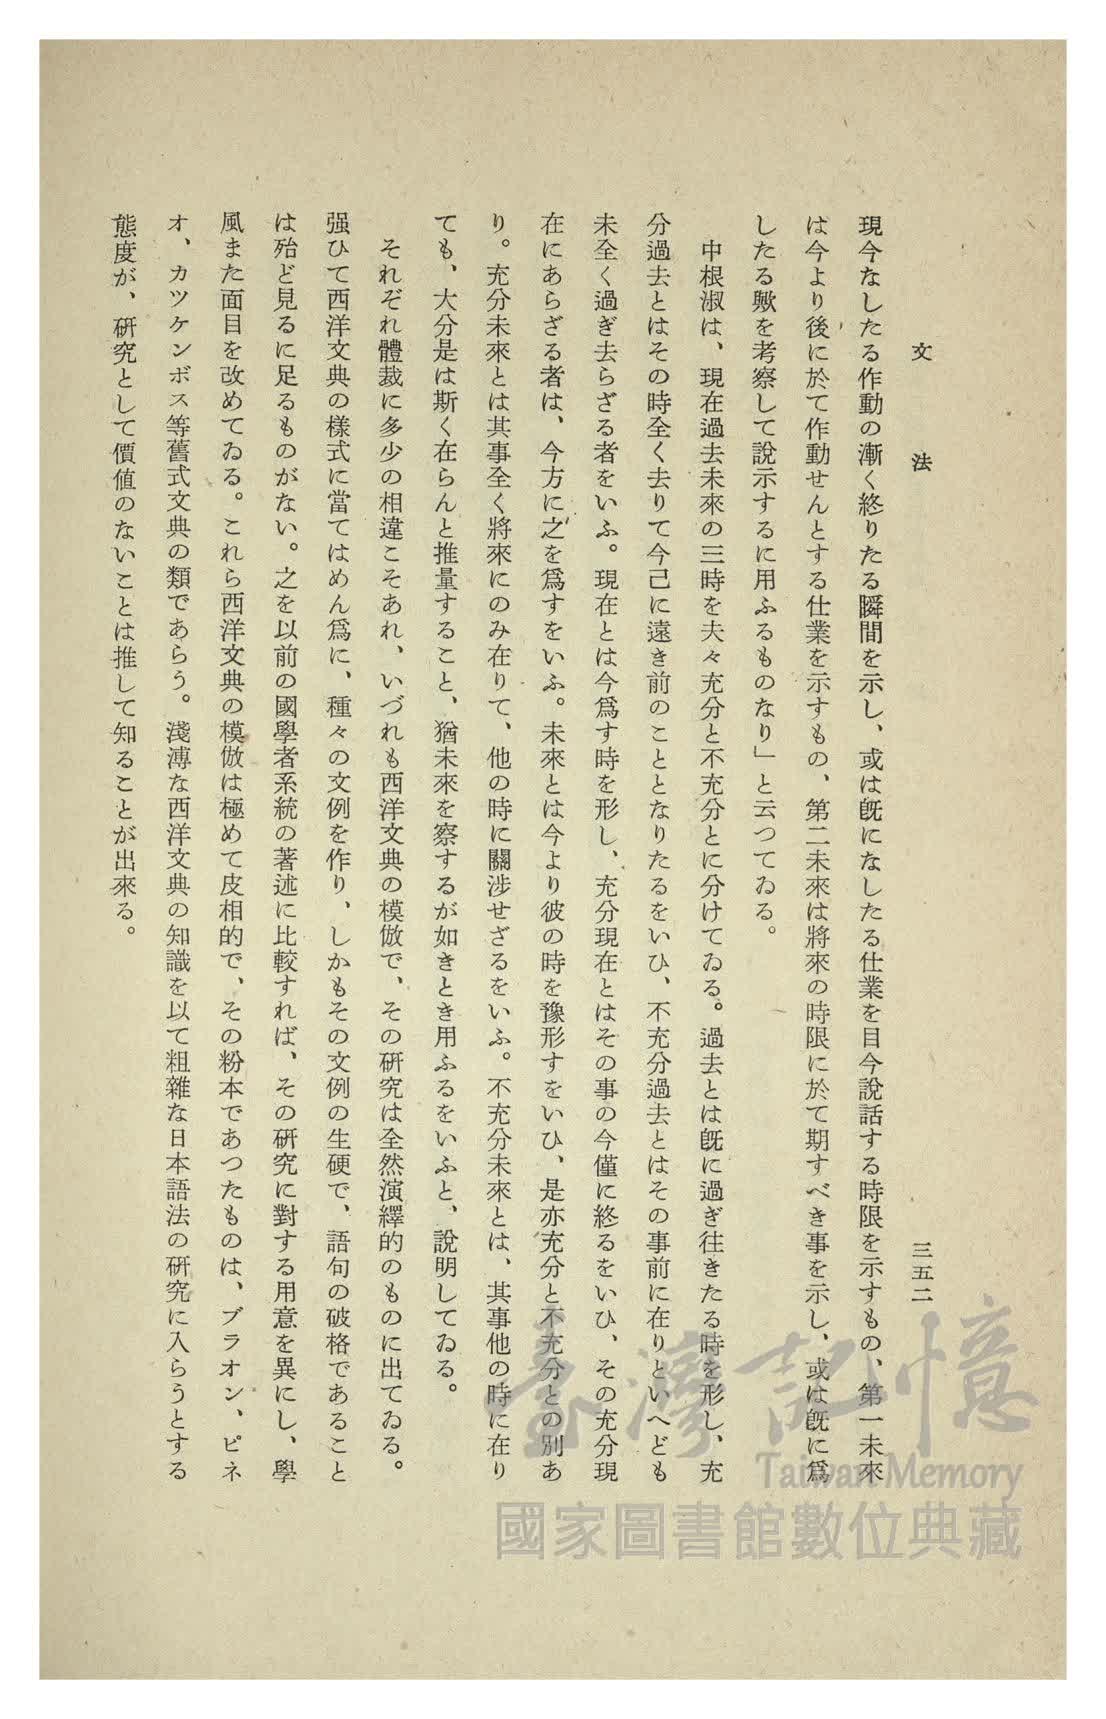 文法
三五二
現今なしたる作動の漸く終りたる瞬間を示し、或は既になしたる仕業を目今說話する時限を示すもの、第一未來
は今より後に於て作動せんとする仕業を示すもの、第二未來は將來の時限に於て期すべき事を示し、或は既に爲
したる歟を考察して說示するに用ふるものなり」と云つてゐる。
中根淑は、現在過去未來の三時を夫々充分と不充分とに分けてゐる。過去とは既に過ぎ往きたる時を形し、充
分過去とはその時全く去りて今己に遠き前のこととなりたるをいひ、不充分過去とはその事前に在りといへども
未全く過ぎ去らざる者をいふ。現在とは今爲す時を形し、充分現在とはその事の今僅に終るをいひ、その充分現
在にあらざる者は、今方に之を爲すをいふ。未來とは今より彼の時を豫形すをいひ、是亦充分と不充分との別あ
り。充分未來とは其事全く將來にのみ在りて、他の時に關涉せざるをいふ。不充分未來とは、其事他の時に在り
ても、大分是は斯く在らんと推量すること、猶未來を察するが如きとき用ふるをいふと、說明してゐる。
それぞれ體裁に多少の相違こそあれ、いづれも西洋文典の模倣で、その研究は全然演繹的のものに出てゐる。
强ひて西洋文典の樣式に當てはめん爲に、種々の文例を作り、しかもその文例の生硬で、語句の破格であること
は殆ど見るに足るものがない。之を以前の國學者系統の著述に比較すれば、その硏究に對する用意を異にし、學
風また面目を改めてゐる。これら西洋文典の模倣は極めて皮相的で、その粉本であつたものは、ブラオン、ピネ
オ、カツケンボス等舊式文典の類であらう。淺溥な西洋文典の知識を以て粗雜な日本語法の硏究に入らうとする
態度が、硏究として價値のないことは推して知ることが出來る。
臺灣記憶
Taiwan Memory
國家圖書館數位典藏